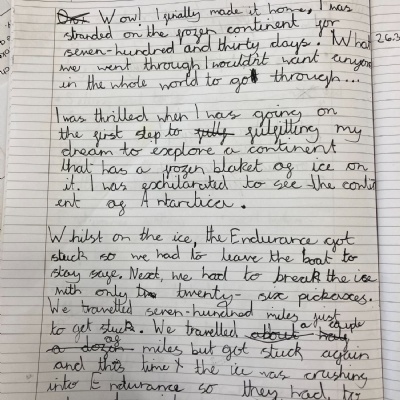 Wow! I finally made it home, I was
stranded on the frozen continent for
seven-hundred and thirty days. What
we went through I wouldn't want anyone
in the whole world to go through...
I was thrilled when I was going on
the first step to fully fulfilling my
dream to explore a continent
that has a frozen blaket of ice on
it. I was exhilarated to see the contin
ent of Antartica.
Whilst on the ice, the Endurance got
stuck so we had to leave the boat to
stay safe. Next, we had to break the ice
with only twenty-six pickaxes.
We travelled seven-hundred miles just
to get stuck. We travelled about a couple
a dozen of miles but got stuck again
and this time the ice was crushing
into Endurance so they had to
26.3